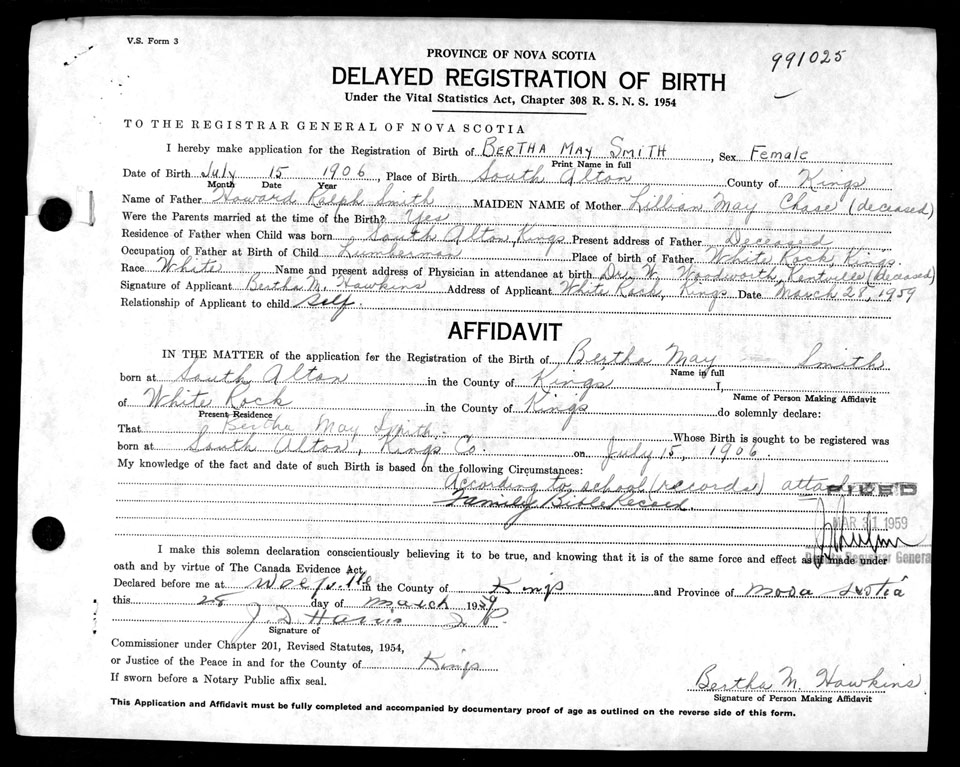 V.S. Form 3
991025
PROVINCE OF NOVA SCOTIA
DELAYED REGISTRATION OF BIRTH
Under the Vital Statistics Act, Chapter 308 R. S. N. S. 1954
TO THE REGISTRAR GENERAL OF NOVA SCOTIA
I hereby make application for the Registration of Birth of BERTHA MAY SMITH, Sex Female
Print Name in full
Date of Birth July 15 1906, Place of Birth South Alton County of Kings
Month Date Year
Name of Father Howard Ralph Smith MAIDEN NAME of Mother Lillian May Chase (deceased)
Were the Parents married at the time of the Birth? Yes
Residence of Father when Child was born South Alton, Kings Present address of Father Deceased
Occupation of Father at Birth of Child Lumberman Place of birth of Father White Rock Kings.
Race White Name and present address of Physician in attendance at birth Dr. W. Woodworth, Kentville (deceased)
Signature of Applicant Bertha M. Hawkins Address of Applicant White Rock, Kings Date March 28, 1959
Relationship of Applicant to child self.
AFFIDAVIT
IN THE MATTER of the application for the Registration of the Birth of Bertha May Smith
Name in full
born at South Alton in the County of Kings I,
Name of Person Making Affidavit
of White Rock in the County of Kings do solemnly declare:
Present Residence
That Bertha May Smith, Whose Birth is sought to be registered was
born at South Alton, Kings Co. on July 15, 1906.
My knowledge of the fact and date of such Birth is based on the following Circumstances:
According to school (records)
Family Bible Record.
FILED
MAR 31 1959
Deputy Registrar General
I make this solemn declaration conscientiously believing it to be true, and knowing that it is of the same force and effect as if made under
oath and by virtue of The Canada Evidence Act.
Declared before me at Wolfville in the County of Kings and Province of Nova Scotia
this 28 day of March 1959
J. D. Harris J. P.
Signature of
Commissioner under Chapter 201, Revised Statutes, 1954,
or Justice of the Peace in and for the County of Kings
If sworn before a Notary Public affix seal.
Bertha M. Hawkins.
Signature of Person Making Affidavit
This Application and Affidavit must be fully completed and accompanied by documentary proof of age as outlined on the reverse side of this form.